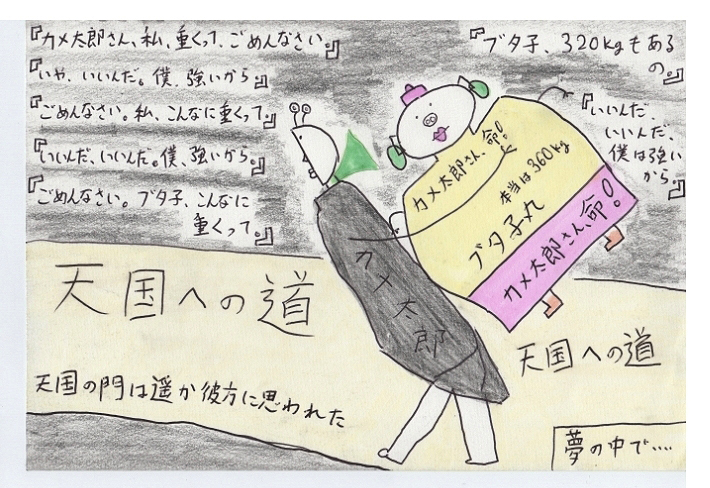 『カメ太郎さん、私、重くって、ごめんなさい。』
『いや、いいんだ。僕、強いから。』
『ごめんなさい。私、こんなに重くって。』
『いいんだ、いいんだ。僕、強いから。』
『ごめんなさい。ブタ子、こんなに
重くって。』
『ブタ子、320kgもある
の。』
『いいんだ、
いいんだ、
僕は強い
から。』
カメ太郎さん、命!
本当は360kg
ブタ子丸
カメ太郎さん、命!
カメ太郎
天国への道
天国への道
天国の門は遥か彼方に思われた
夢の中で‥‥